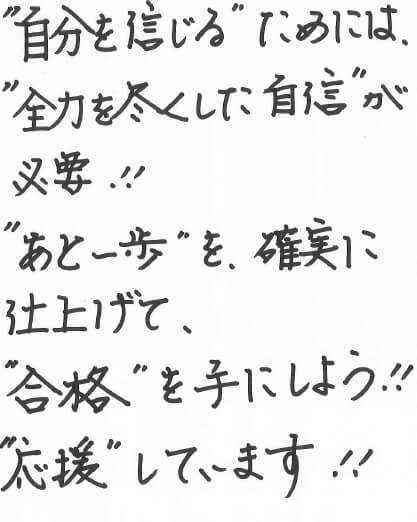 "自分を信じる"ためには、
"全力を尽くした自信"が
必要!!
"あと一歩"を、確実に
仕上げて、
"合格"を手にしよう!!
"応援"しています!!